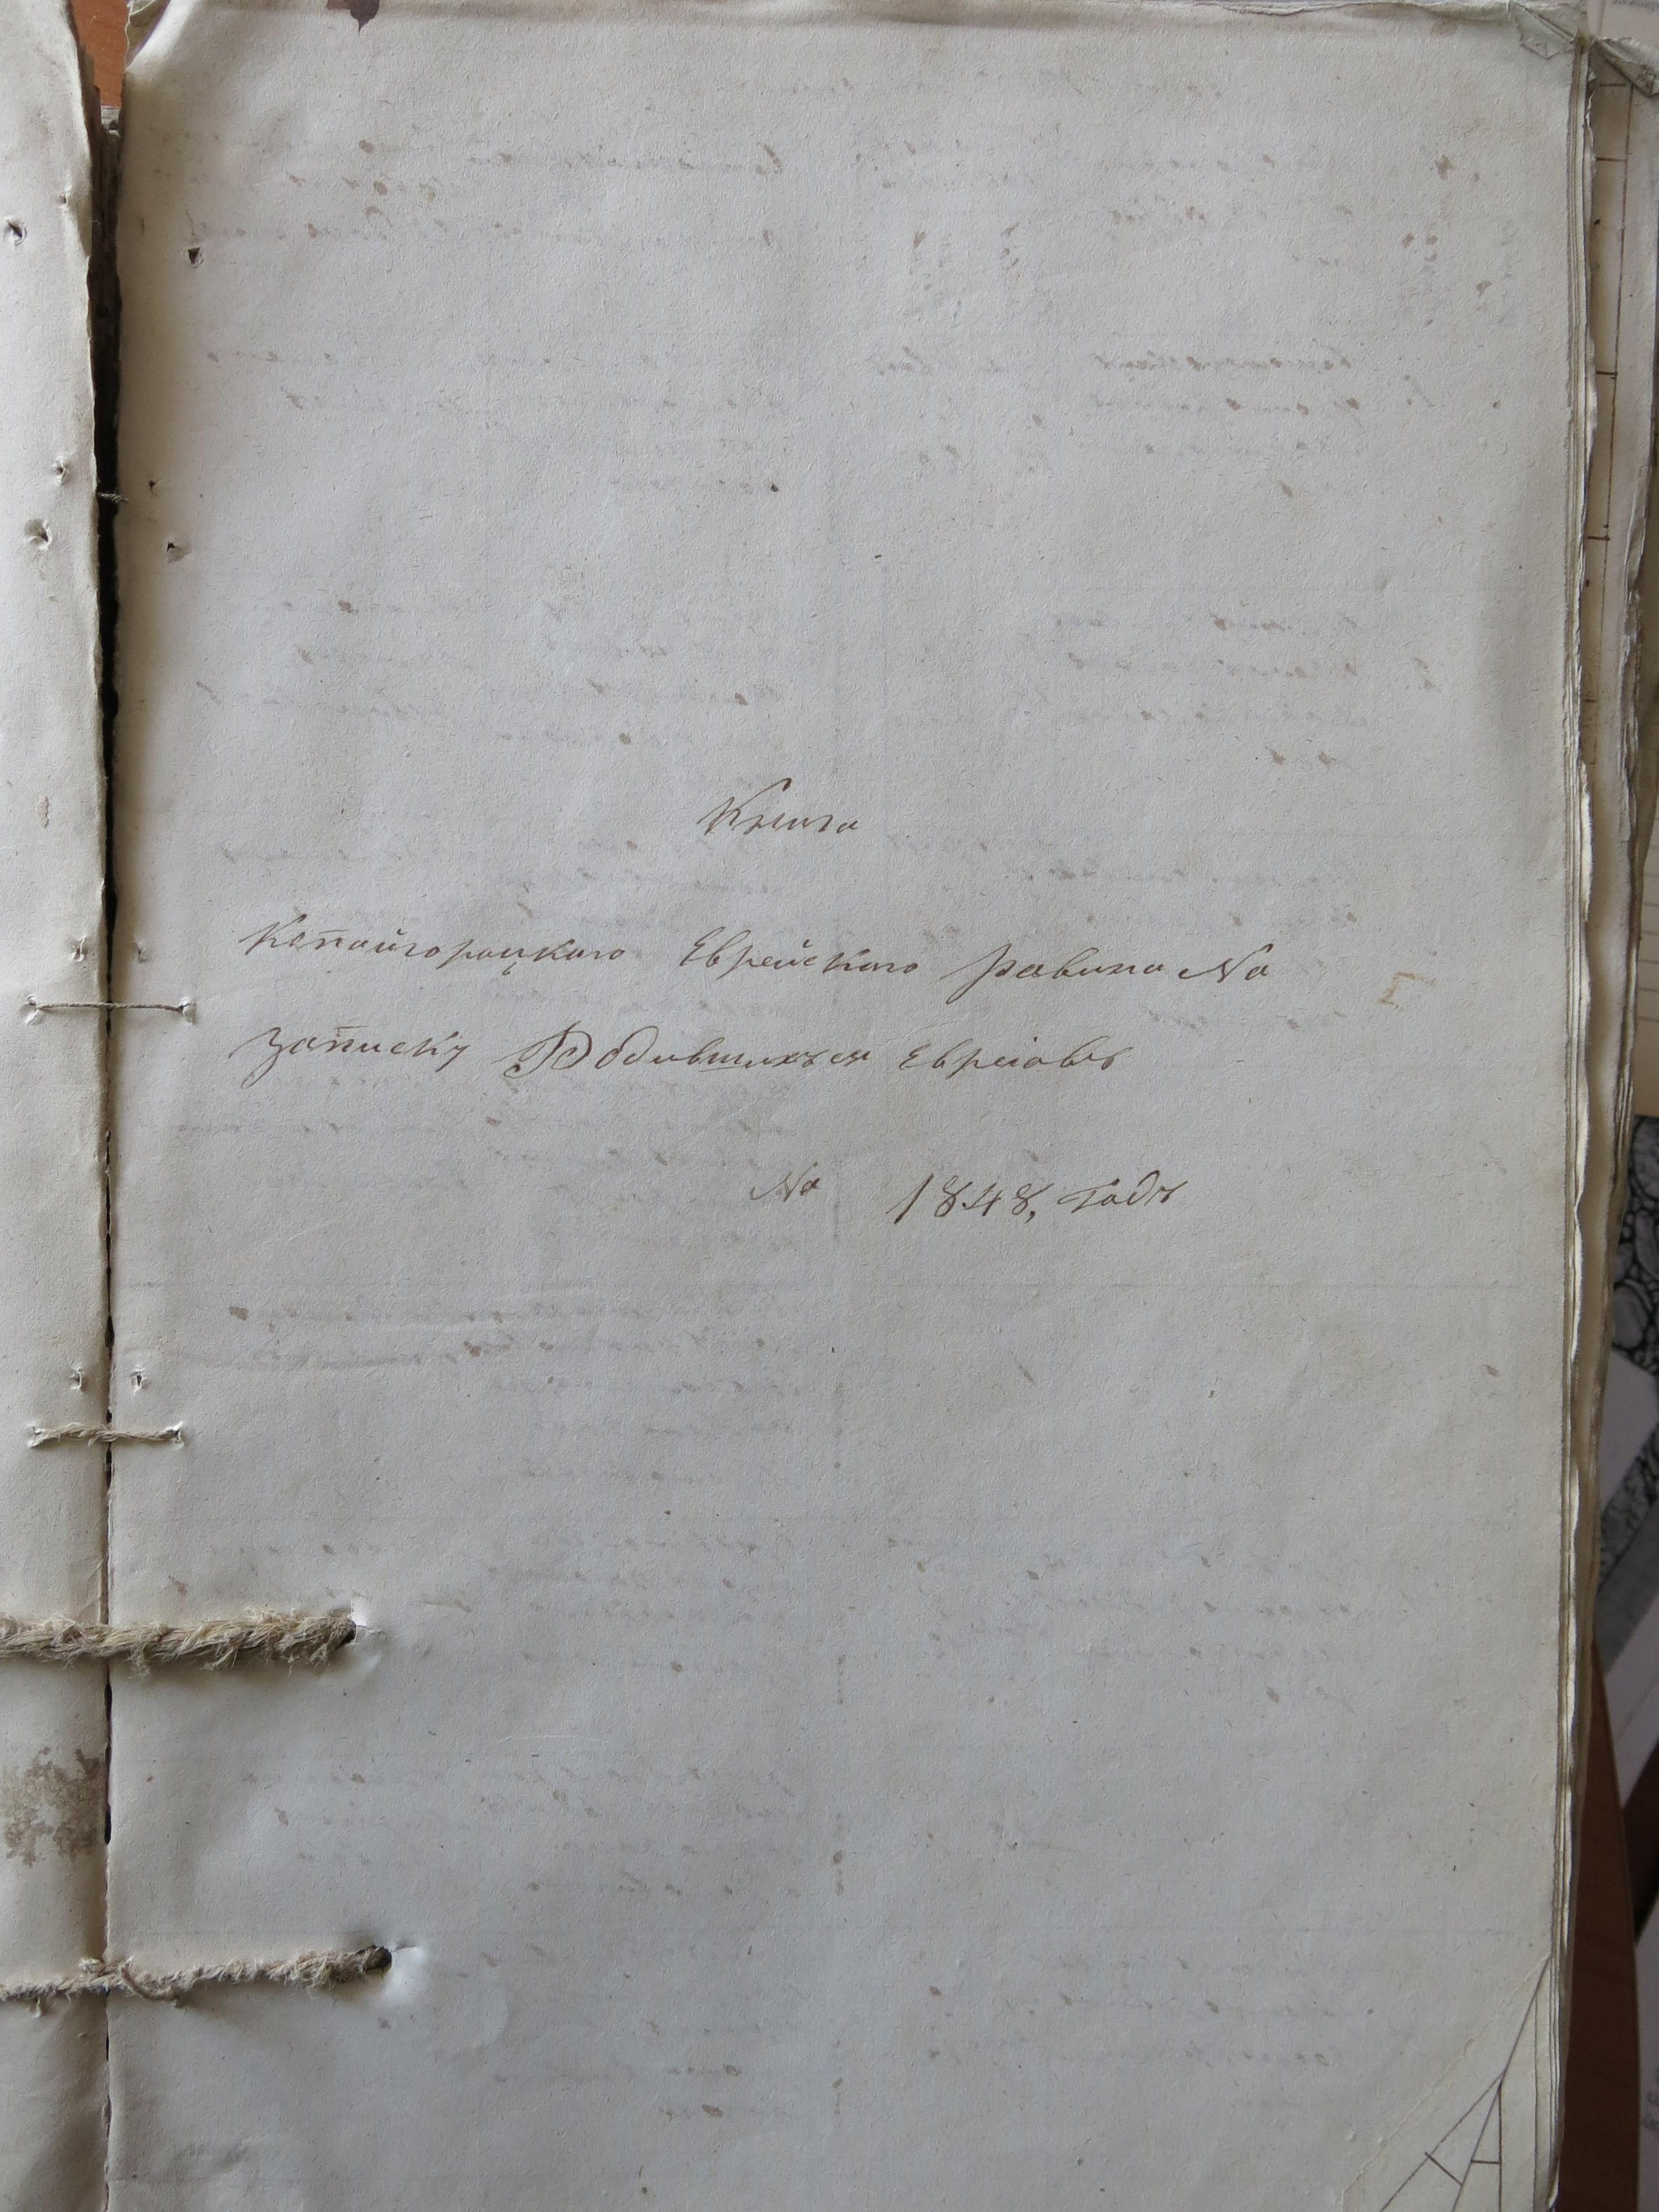 Книга
Копайгородцкаго Еврейскаго равина На
записку Родившихъся Евреіовъ
На 1848, годъ